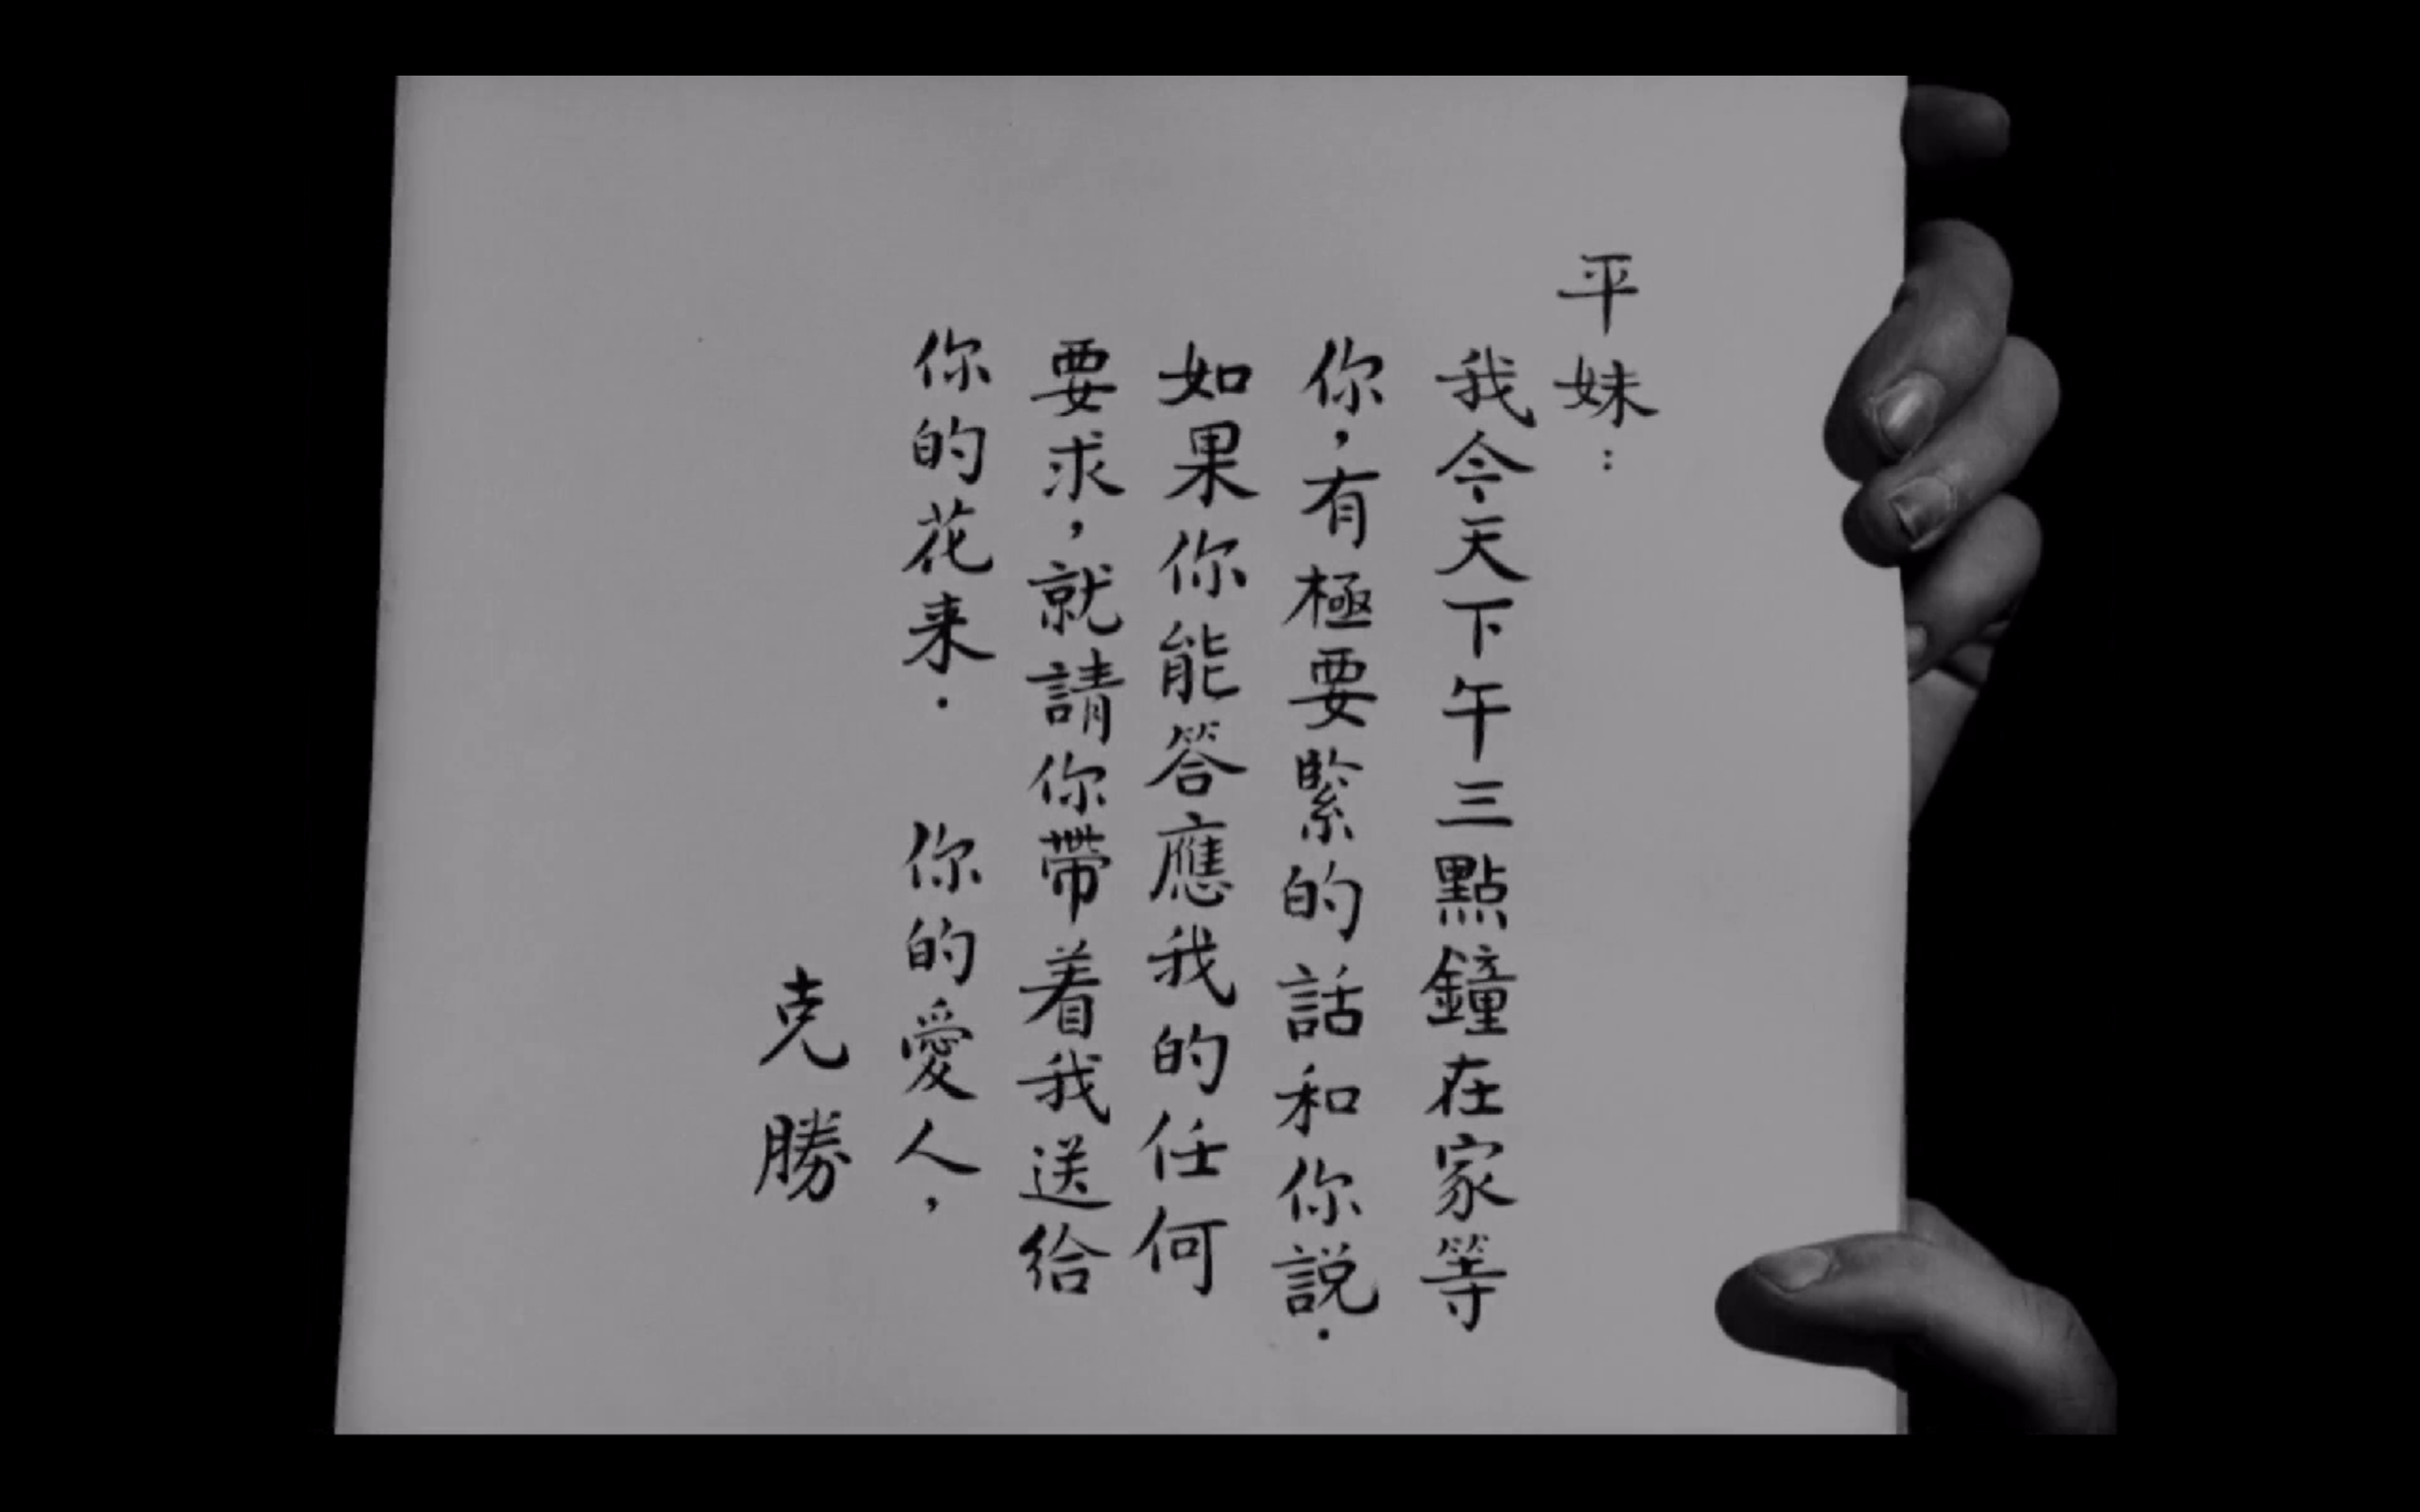 平妹：
我今天下午三點鐘在家等
你，有極要緊的話和你説．
如果你能答應我的任何
要求，就請你帶着我送給
你的花来．　你的愛人，
克勝